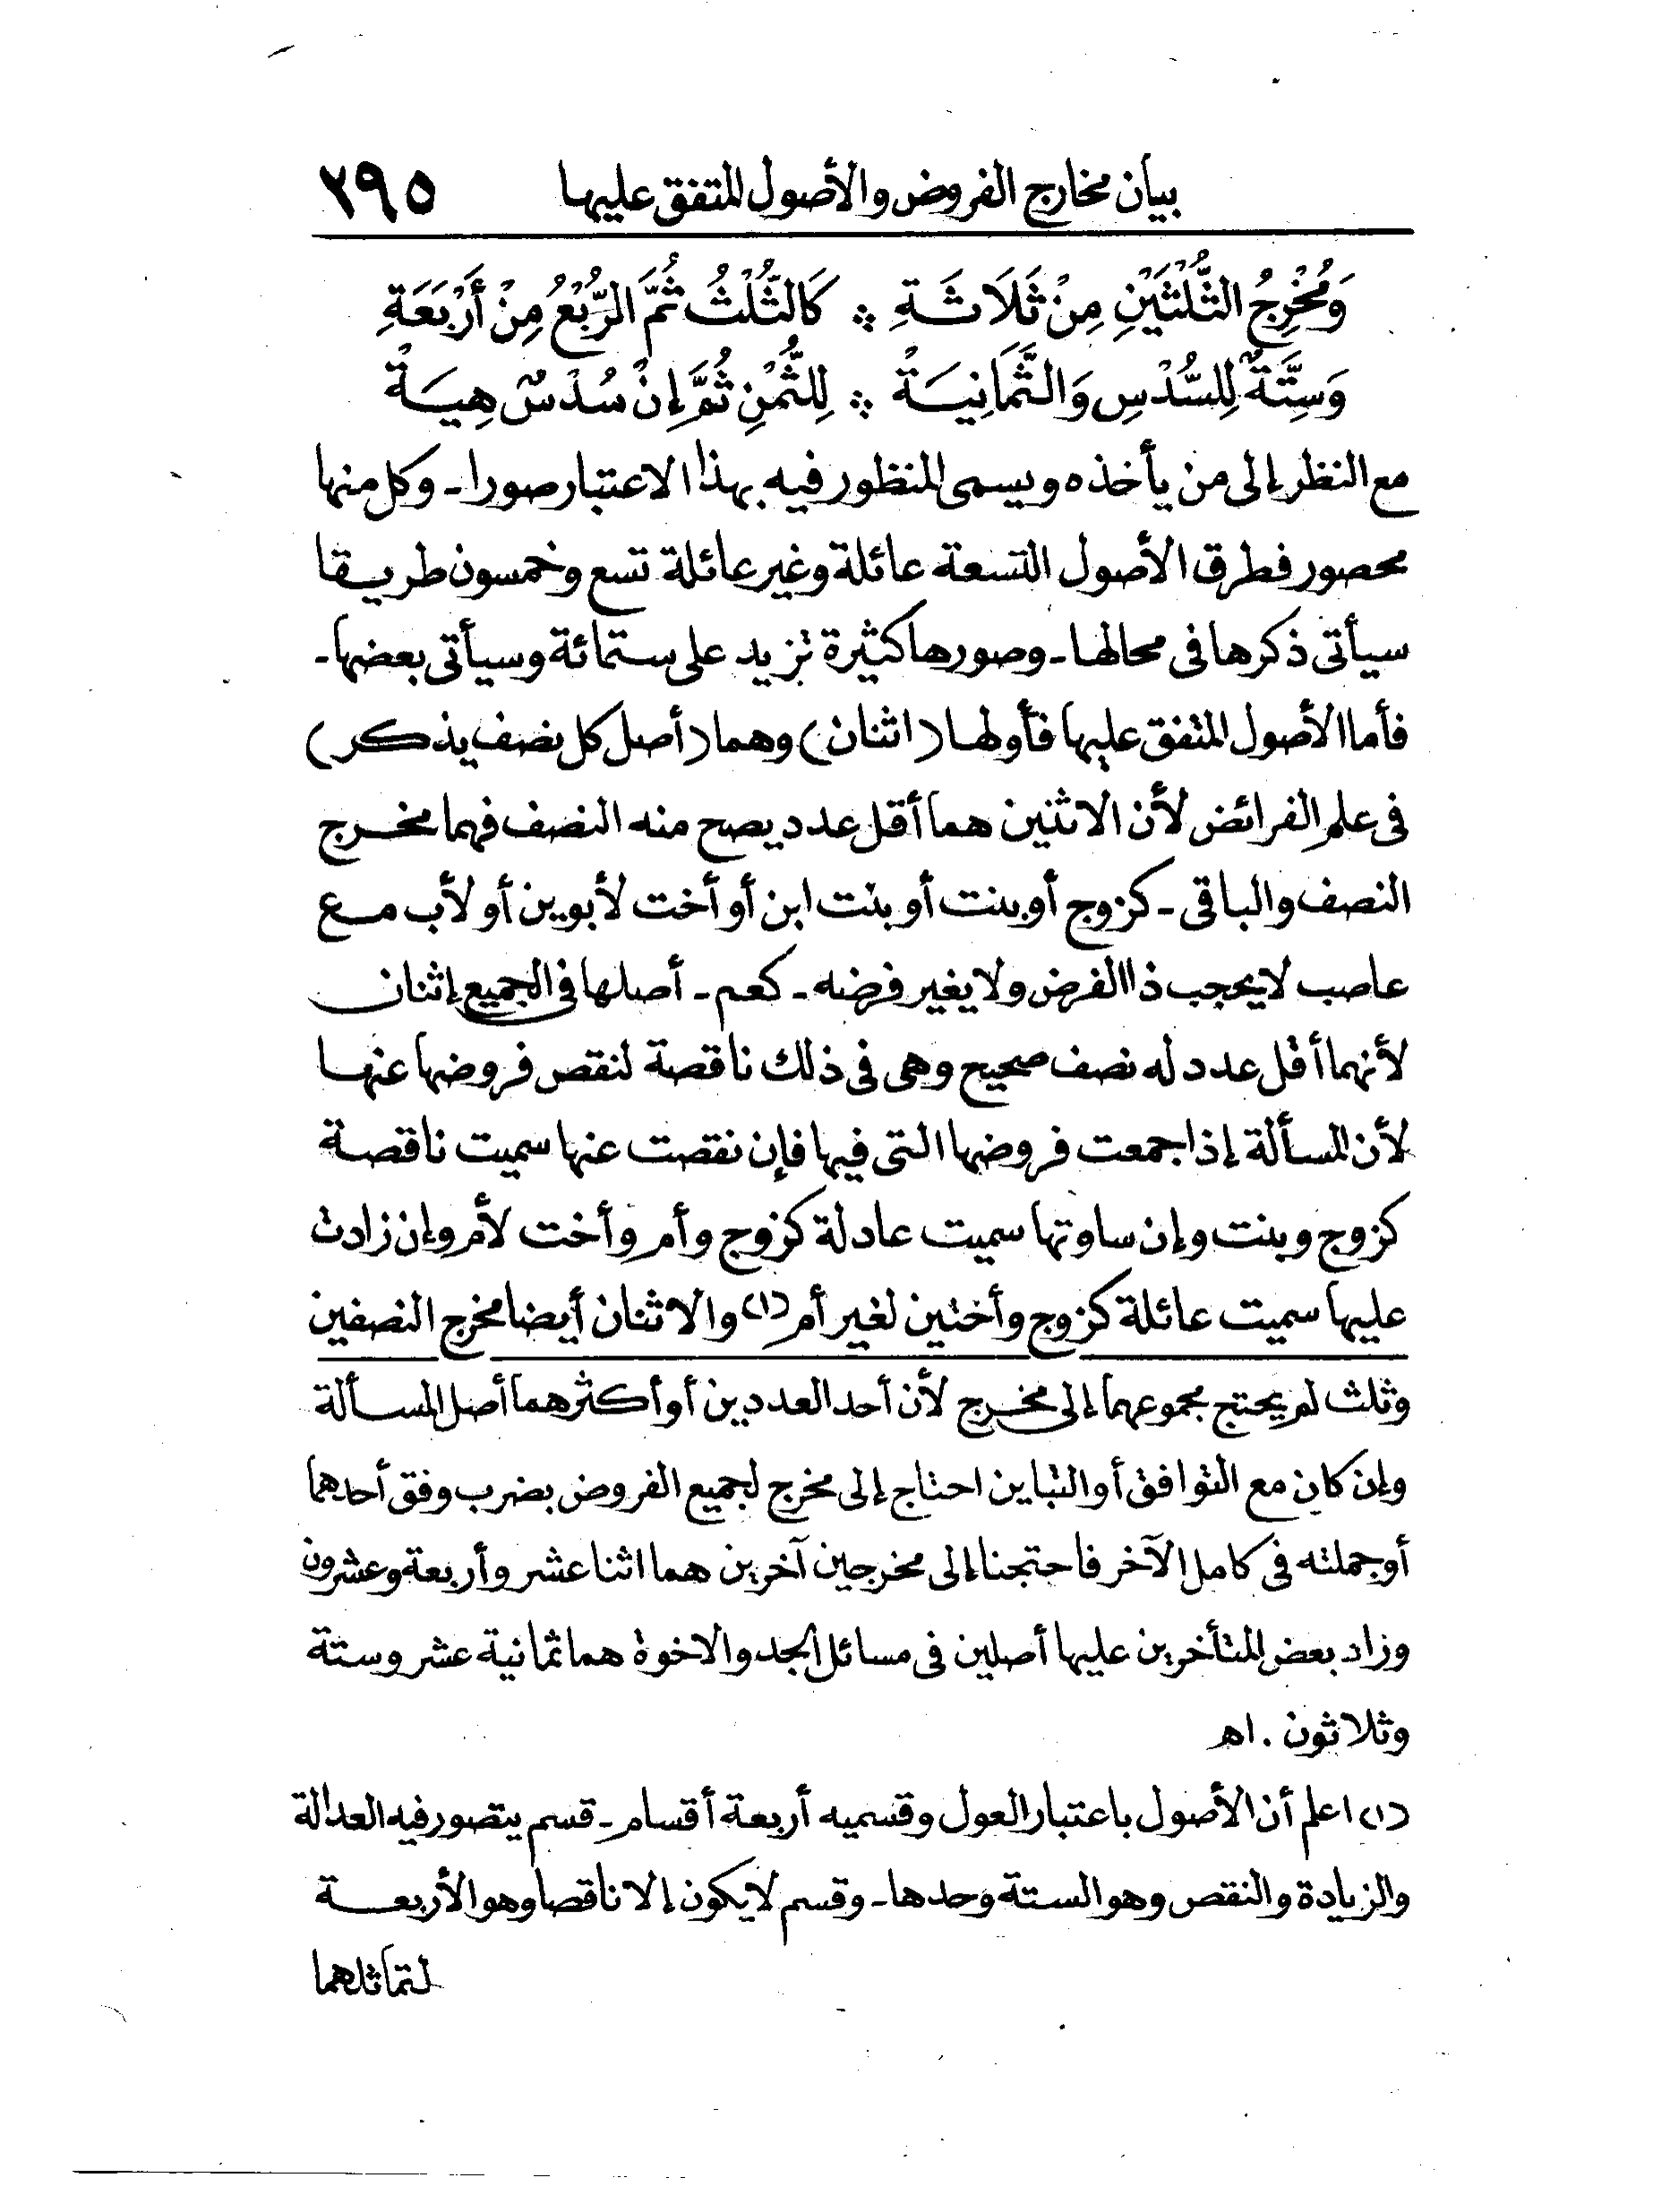 بيان مخارج الفروض والأصول المتفق عليها ٢٩٥
وَمُخْرِجُ الثُّلُثَيْنِ مِنْ ثَلَاثَةِ ⁘ كَالثُّلُثُ ثُمَّ الرُّبْعُ مِنْ أَرْبَعَةِ
وَسِتَّةٌ لِلسُّدْسِ وَالثَّمَانِيَةْ ⁘ لِلثُّمْنِ ثُمَّ إِنْ سُدْسٌ هِيَةْ
مع النظر إلى من يأخذه ويسمى المنظور فيه بهذا الاعتبار صورا ـ وكل منها
محصور فطرق الأصول التسعة عائلة وغير عائلة تسع وخمسون طريقا
سيأتى ذكرها فى محالها ـ وصورها كثيرة تزيد على ستمائة وسيأتى بعضها ـ
فأما الأصول المتفق عليها فأولها (اثنان) وهما (أصل كل نصف يذكر)
فى علم الفرائض لأن الاثنين هما أقل عدد يصح منه النصف فهما مخرج
النصف والباقى ـ كزوج أو بنت أو بنت ابن أو أخت لأبوين أو لأب مع
عاصب لا يحجب ذا الفرض ولا يغير فرضه ـ كعم ـ أصلها فى الجميع إثنان
لأنهما أقل عدد له نصف صحيح وهى فى ذلك ناقصة لنقص فروضها عنها
لأن المسألة إذا جمعت فروضها التى فيها فإن نقصت عنها سميت ناقصة
كزوج وبنت وإن ساوتها سميت عادلة كزوج وأم وأخت لأم وإن زادت
عليها سميت عائلة كزوج وأختين لغير أم (١) والاثنان أيضا مخرج النصفين
وثلث لم يحتج مجموعهما إلى مخرج لأن أحد العددين أو أكثرهما أصل المسألة
وإن كان مع التوافق أو التباين احتاج إلى مخرج لجميع الفروض بضرب وفق أحدهما
أو جملته فى كامل الآخر فاحتجنا إلى مخرجين آخرين هما اثنا عشر وأربعة وعشرون
وزاد بعض المتأخرين عليها أصلين فى مسائل الجد والاخوة هما ثمانية عشر وستة
وثلاثون . اهـ
(١) اعلم أن الأصول باعتبار العول وقسميه أربعة أقسام ـ قسم يتصور فيه العدالة
والزيادة والنقص وهو الستة وحدها ـ وقسم لا يكون إلا ناقصا وهو الأربعة
لتماثلهما